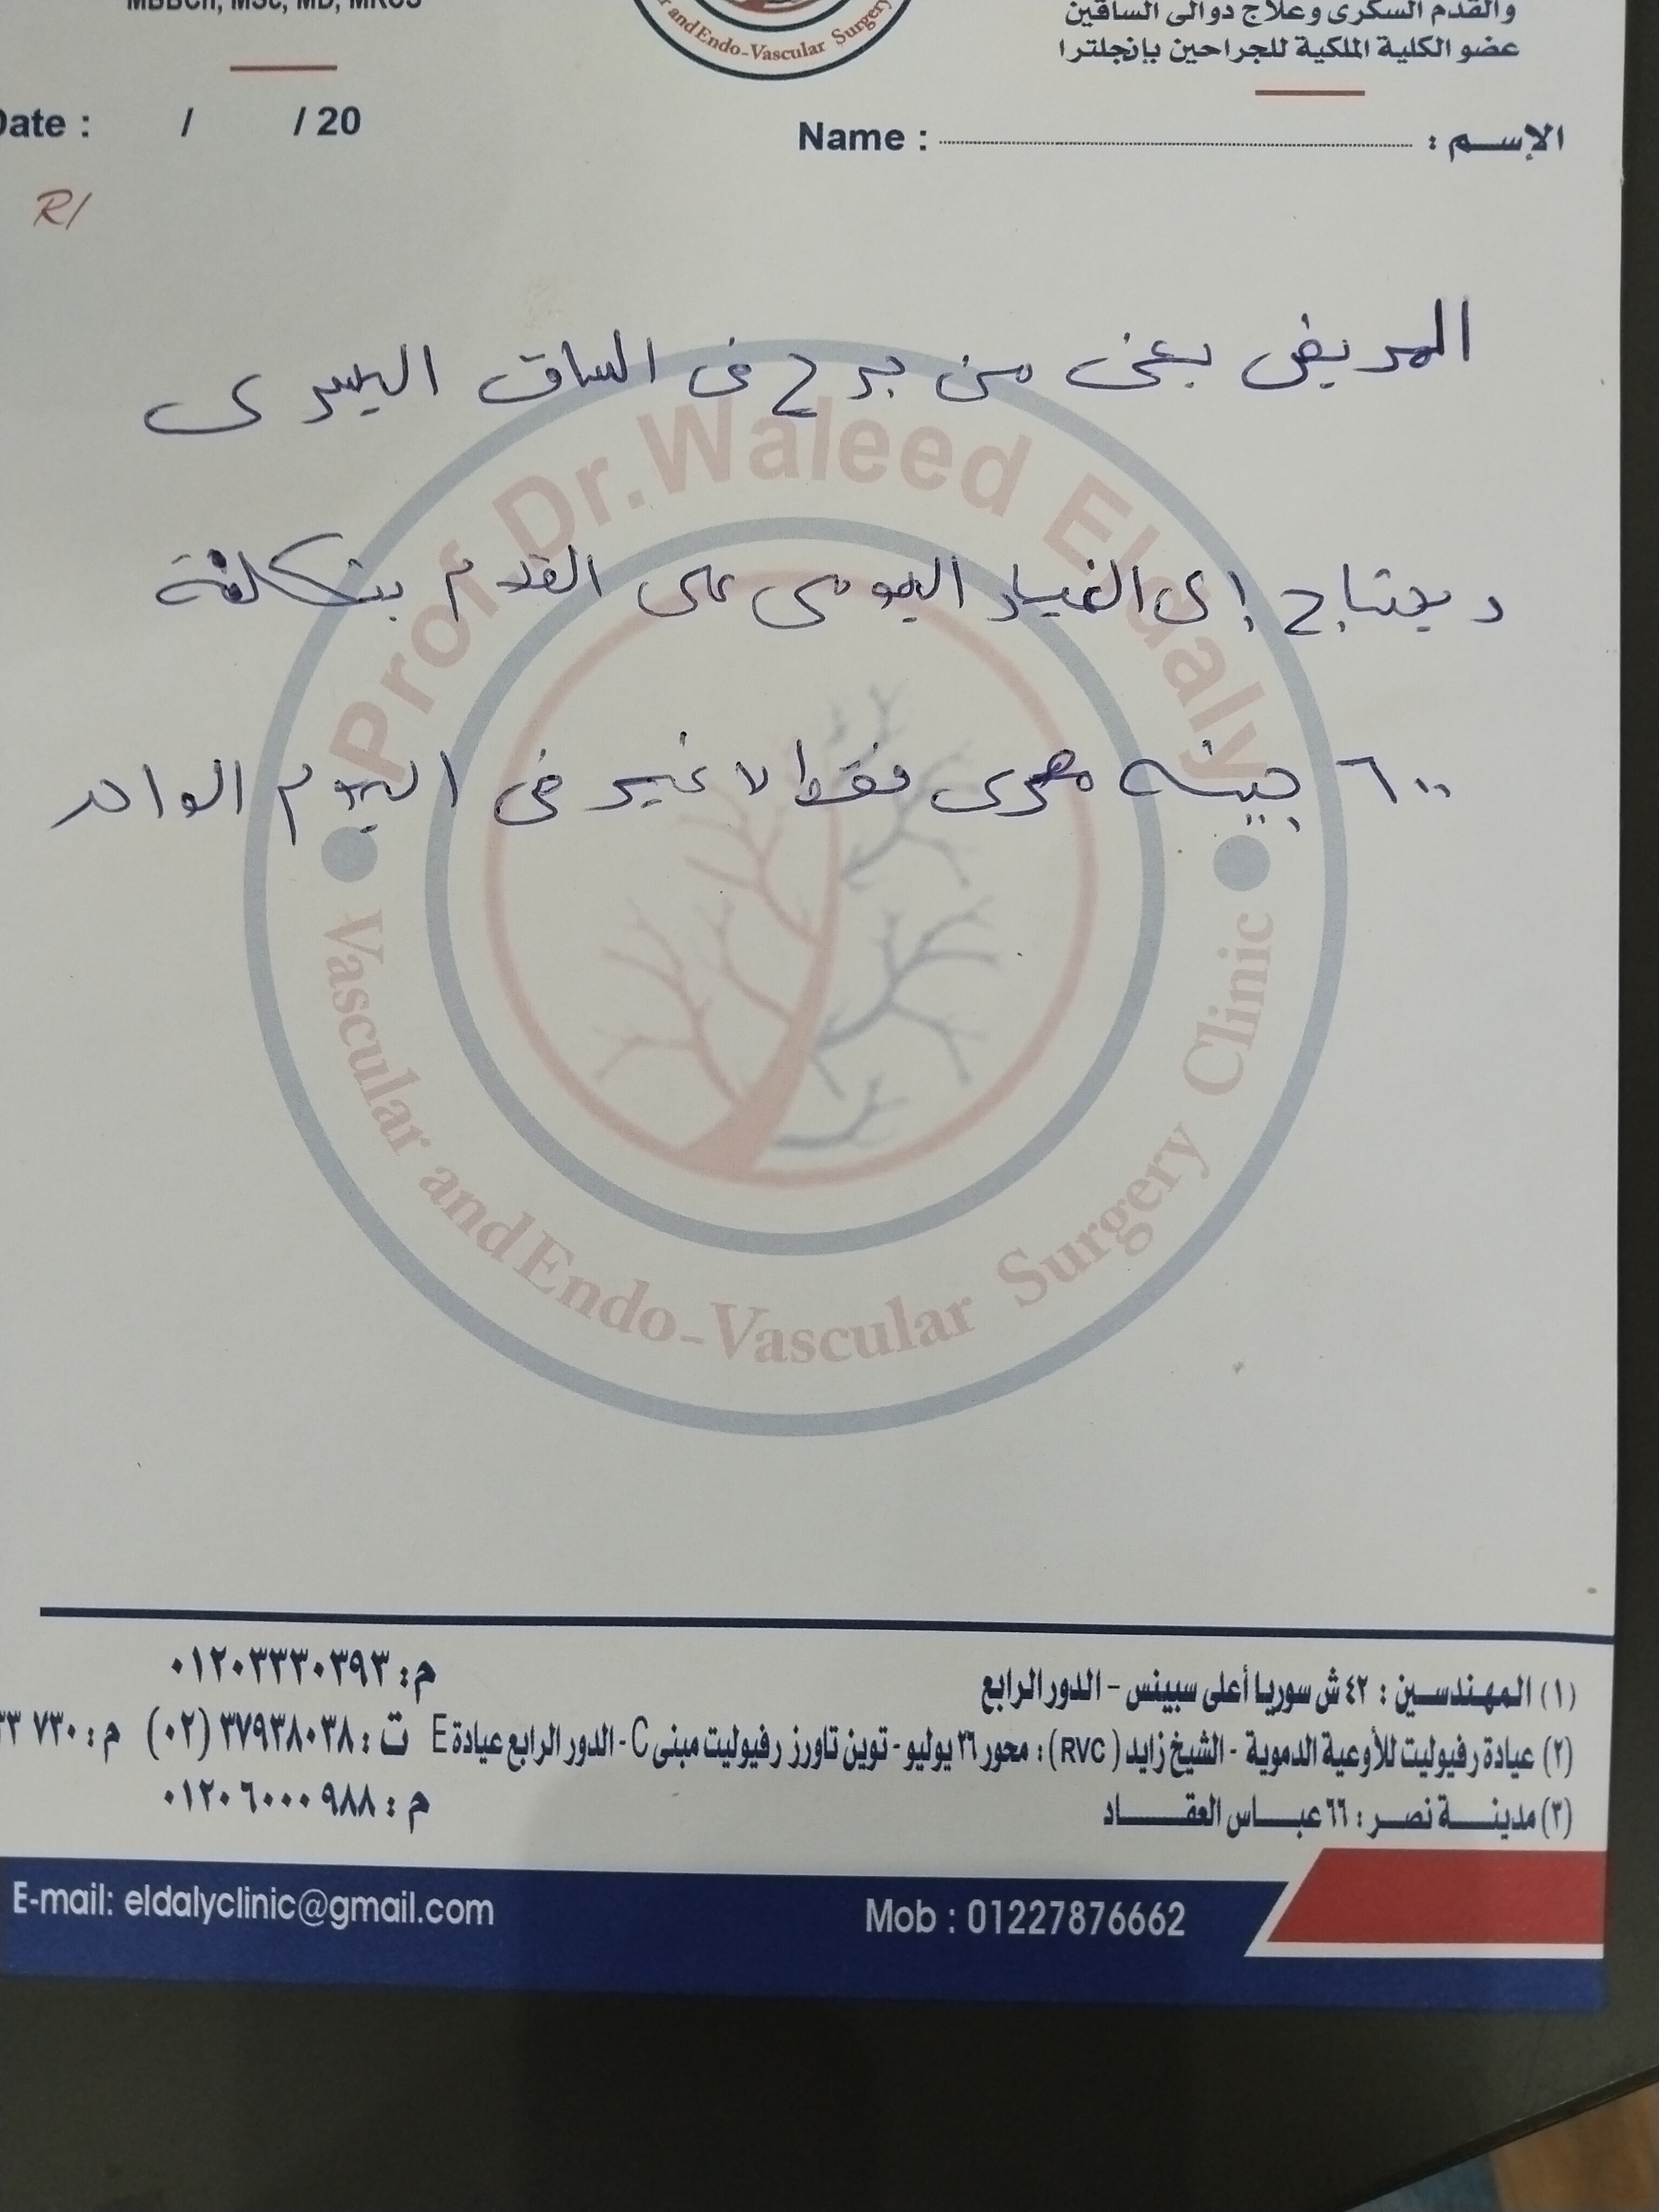 MBBCh, MSc, MD, MRCS
r and Endo-Vascular Surgery
والقدم السكرى وعلاج دوالى الساقين
عضو الكلية الملكية للجراحين بإنجلترا
Date : / / 20
Name : الإسم :
R/
المريض يعنى من جرح فى الساق اليسرى
و يحتاج إلى الغيار اليومى على القدم بتكلفة
٦٠٠ جينه مصرى فقط لا غير فى اليوم الواحد
Prof Dr. Waleed Eldaly
Vascular and Endo-Vascular Surgery Clinic
(١) المهندسين : ٤٢ ش سوريا أعلى سبينس - الدور الرابع م : ٠١٢٠٣٣٣٠٣٩٣
(٢) عيادة رفيوليت للأوعية الدموية - الشيخ زايد (RVC) : محور ٢٦ يوليو - توين تاورز رفيوليت مبنى C - الدور الرابع عيادة E ت : ٣٧٩٣٨٠٣٨ (٠٢) م : ٧٣٠ ٣٣
(٣) مدينة نصر : ٦٦ عباس العقاد م : ٠١٢٠٦٠٠٠٩٨٨
E-mail: eldalyclinic@gmail.com Mob : 01227876662